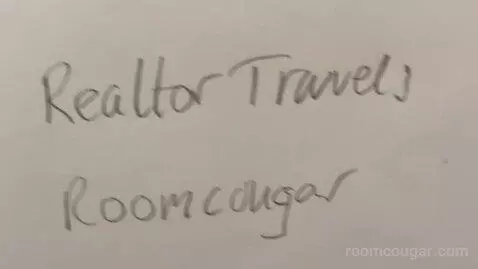 Realtor Travels
Roomcougar
roomcougar.com